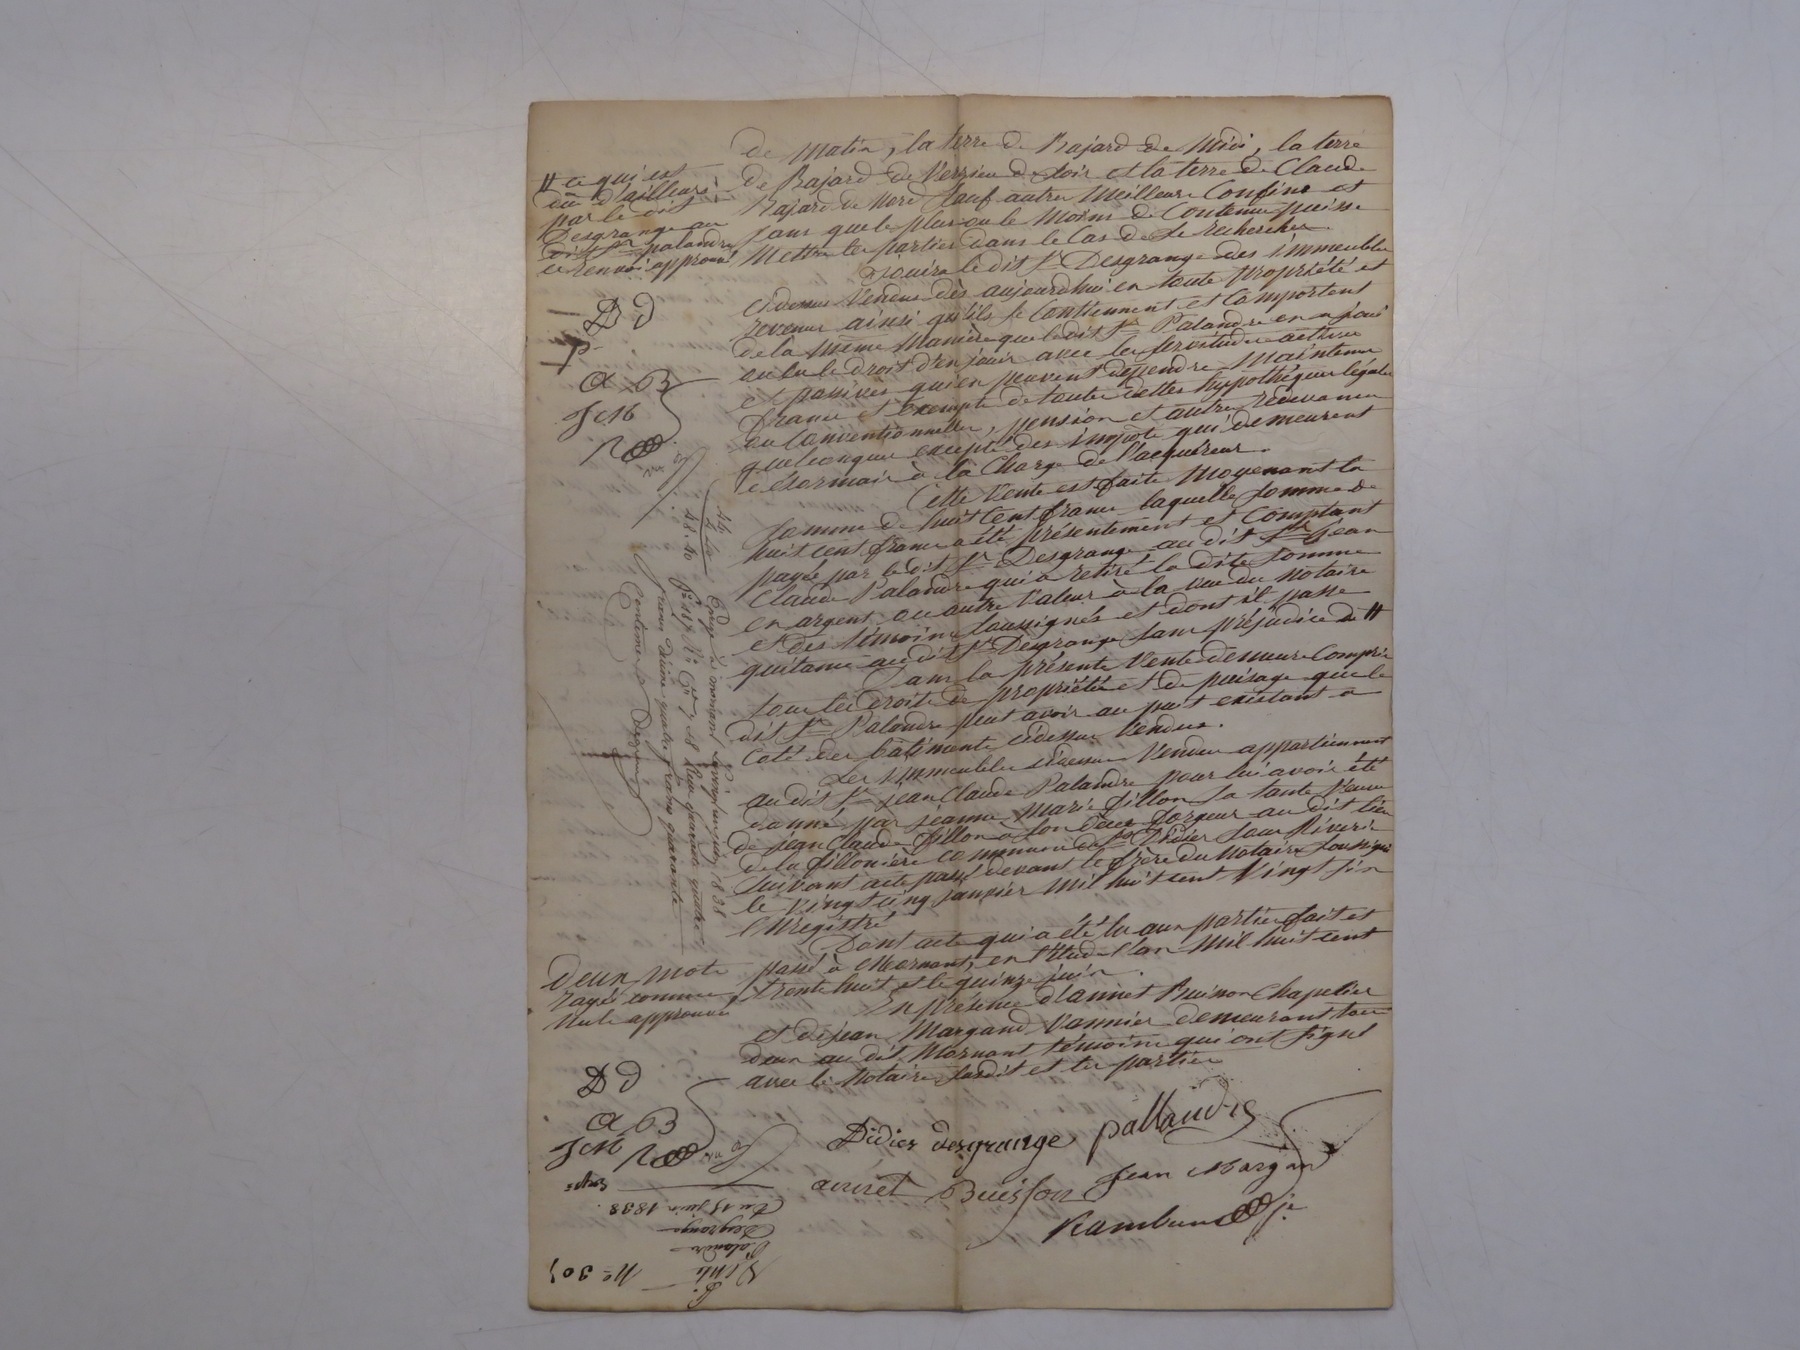 de Matin, la terre de Bajard de Midi, la terre
de Bajard de Verzieu de Soir et la terre de Claude
Bajard de Nord Sauf autre Meilleure Confins et
sans que le plus ou le Moins de Contenue puisse
Mettre les parties dans le Cas de Se rechercher.
Jouira le dit Sr Desgrange des immeubles
cidessus Vendus dès aujourd'hui en toute propriété et
revenus ainsi qu'ils se Contiennent et Comportent
de la même Manière que le dit Sr Palandre en a joui
ou eu le droit d'en jouir avec les servitudes actives
et passives qui en peuvent dépendre maintenus
francs et exempts de toutes dettes hypothèques légales
ou Conventionnelles, pension et autres redevances
quelconques excepté des impots qui demeurent
désormais à la Charge de l'acquéreur.
Cette Vente est faite Moyenant la
Somme de huit Cent francs laquelle Somme de
huit cent francs a été présentement et Comptant
payée par le dit Sr Desgrange au dit Sr jean
Claude Palandre qui a retiré la dite Somme
en argent ou autre Valeur à la vue du Notaire
et des témoins Soussignés et dont il passe
quitance au dit Sr Desgrange sans préjudice de #
Dans la présente Vente demeure Compris
tous les droits de propriétés et de puisage que le
dit Sr Palandre peut avoir au puit existant à
Coté des bâtiments cidessus Vendus.
Les immeubles cidessus Vendus appartiennent
au dit Sr jean Claude Palandre pour lui avoir été
donné par jeanne Marie fillon Sa tante Veuve
de jean Claude fillon à Son décès forgeur au dit lieu
de la fillonière commune de St Didier Sous Riverie
Suivant acte passé devant le frère du Notaire Soussigné
le Vingt cinq janvier Mil huit cent Vingt Six
Enregistré
Dont acte qui a été lu aux parties fait et
passé à Mornant, en l'étude l'an Mil huit cent
trente huit et le quinze juin.
En présence d'annet Buisson Chapelier
et de jean Margand Vannier demeurant tous
deux au dit Mornant témoins qui ont Signé
avec le Notaire Susdit et les parties
# ce qui est
dû d'ailleurs
par le dit
Desgrange au
dit Sr palandre
ce renvoi approuvé
D d
P
a B
JcM
R
46 20
48.40
Engé à mornant le vingt un juin 1838
fo 117 Vo Ce 7 et 8 Reçu quarante quatre
francs décime quatre francs quarante
Centimes
Deux mots
rayés comme
Nuls approuvés
D d
a B
JcM
R
Didier desgrange pallandre
annet Buisson Jean Margand
Rambaud je
No 305
Vente
Palandre
Desgrange
Du 15 juin 1838.
Expe